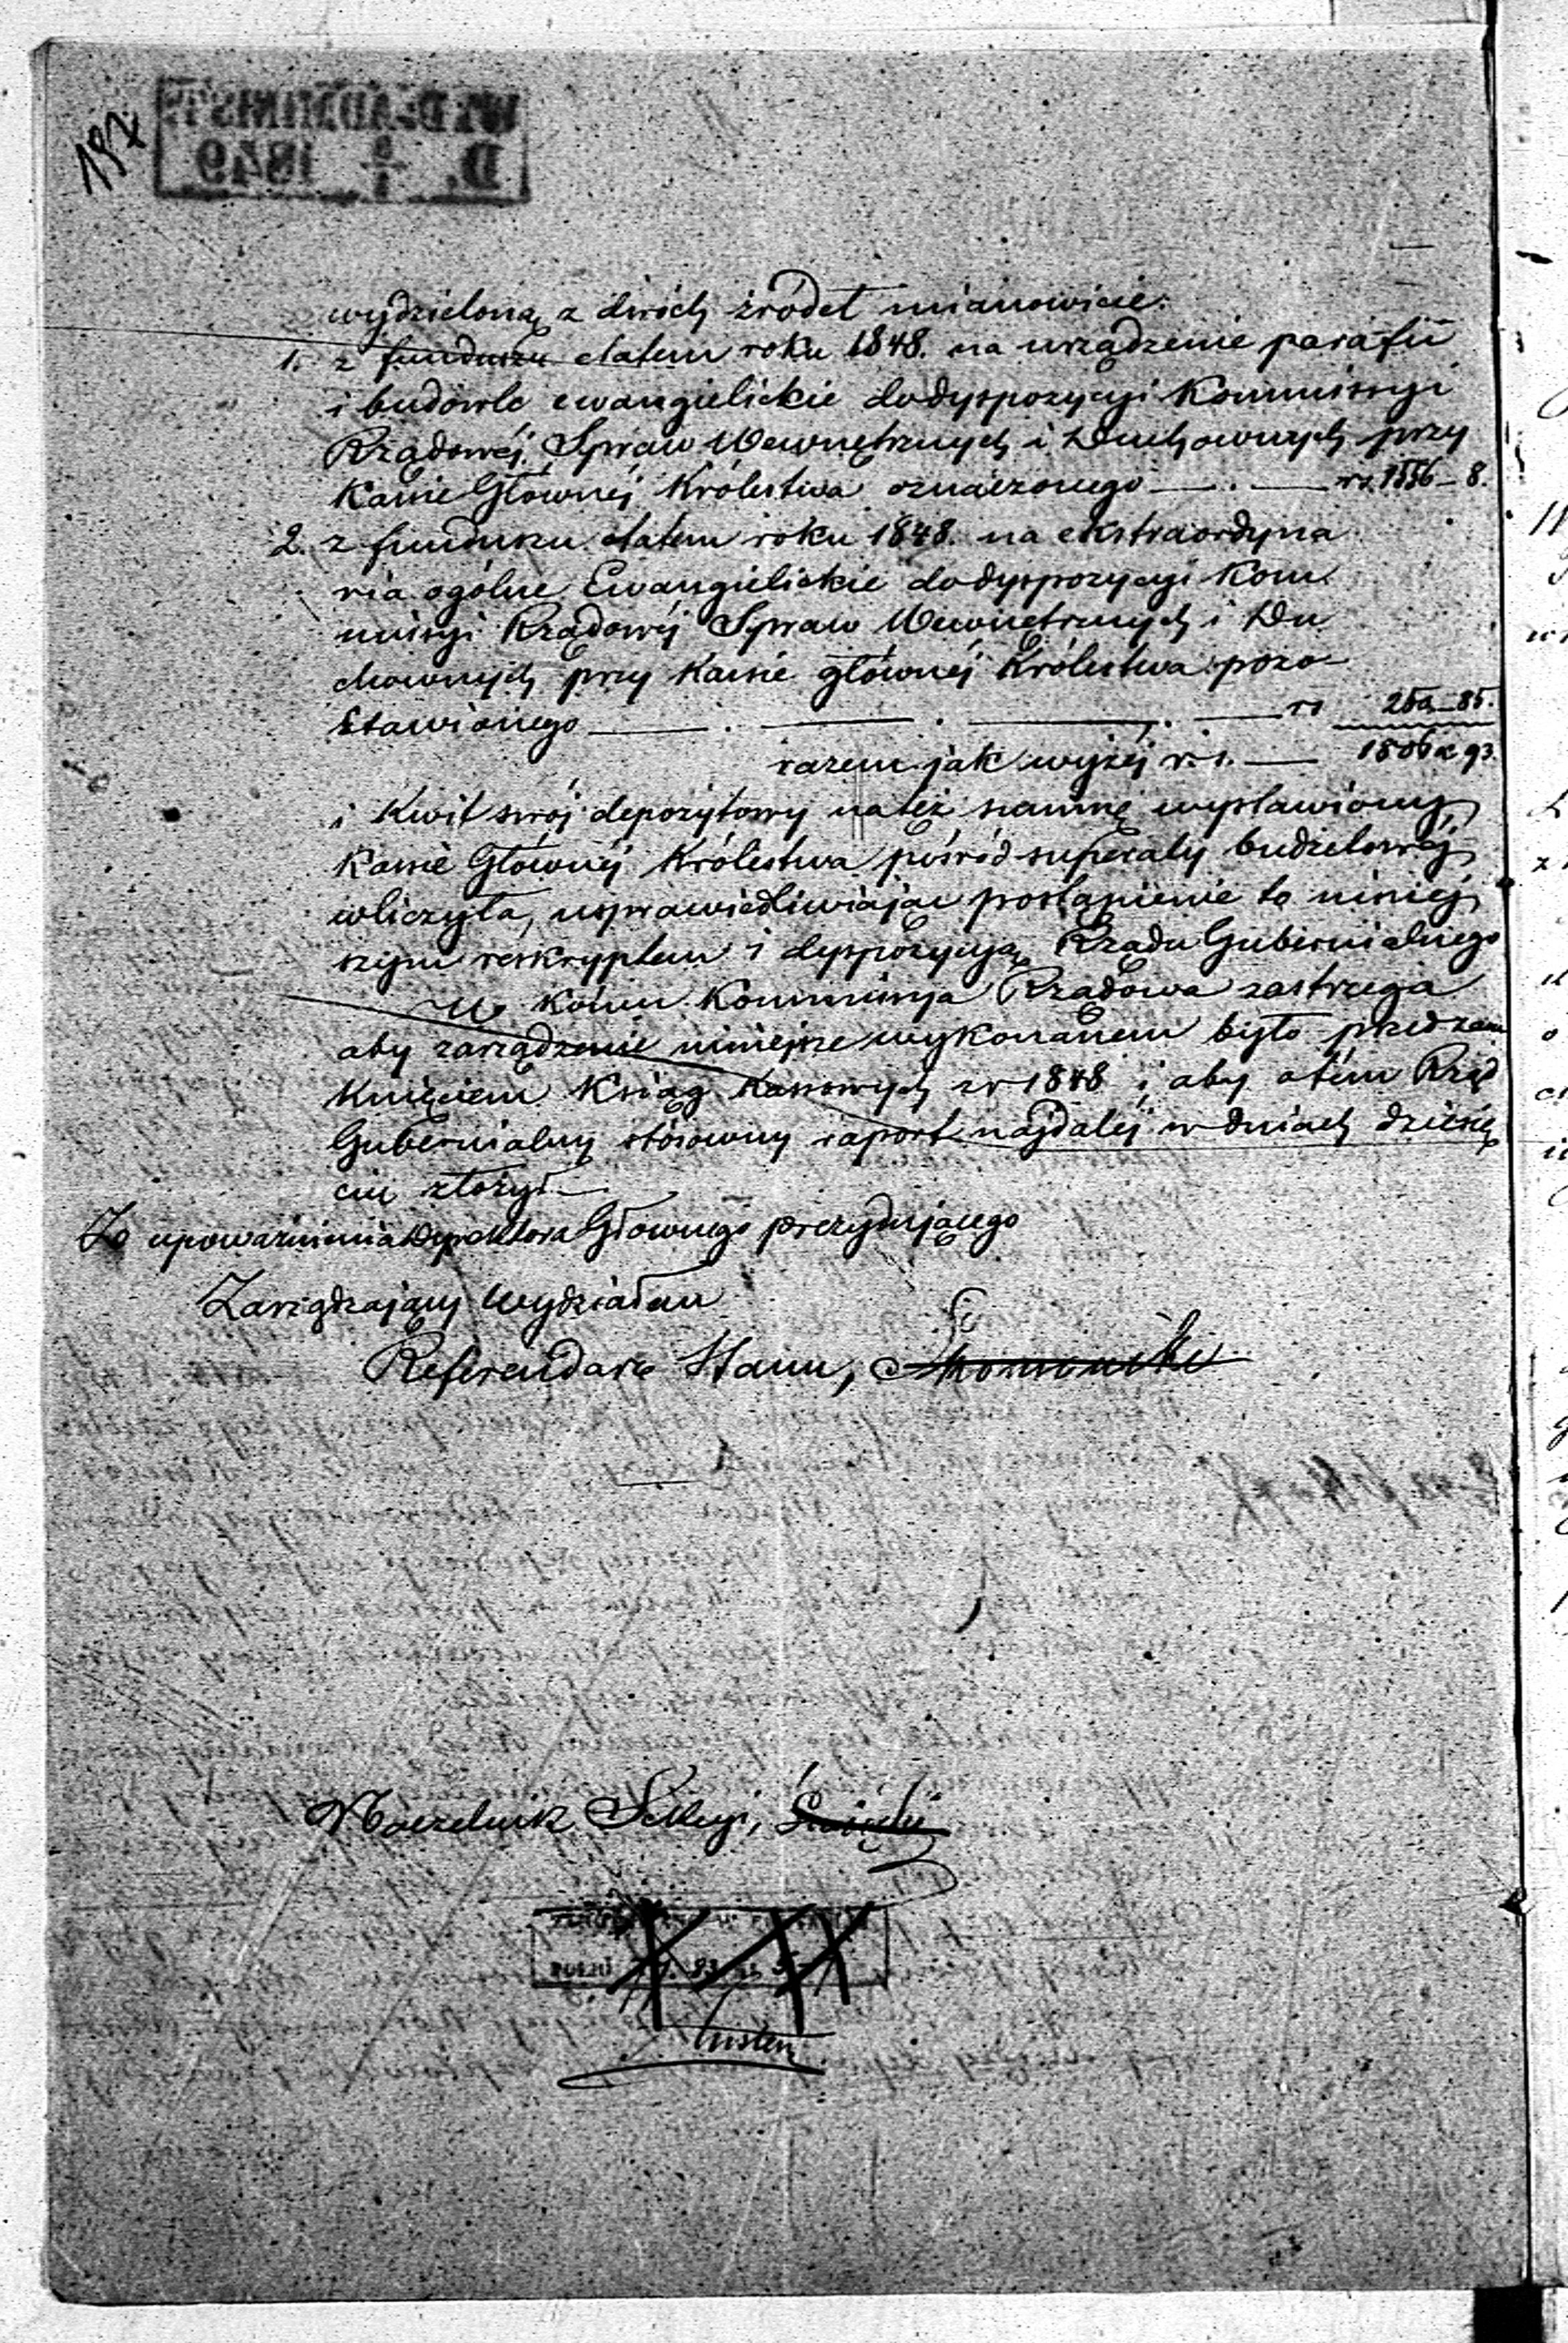 197
wydzieloną z dwóch źródeł mianowicie:
1. z funduszu etatem roku 1848. na urządzenie parafii
i budowle ewangielickie do dyspozycyi Kommissyi
Rządowéj Spraw Wewnętrznych i Duchownych przy
Kassie Głównéj Królestwa oznaczonego rs.
2. z funduszu etatem roku 1848. na ekstraordyna
ria ogólne Ewangielickie do dyspozycyi Kom
missyi Rządowéj Spraw Wewnętrznych i Du
chownych przy Kassie głównéj Królestwa pozo
stawionego rs
razem jak wyżéj rs.
i Kwit swój depozytowy na też summę wystawiony,
Kassie Głównéj Królestwa pośród superaty budżetowéj
wliczyła, usprawiedliwiając postąpienie to niniej
szym reskryptem i dyspozycyją Rządu Gubernialnego
W końcu Kommissya Rządowa zastrzega
aby zarządzenie niniejsze wykonanem było przed zam
knięciem Ksiąg Kassowych z r 1848 i aby o tém Rząd
Gubernialny stósowny raport najdaléj w dniach dziesię
ciu złożył.
Z upoważnienia Dyrektora Głównego prezydującego
Zarządzający Wydziałem
Referendarz Stanu,
Naczelnik Sekcyi,